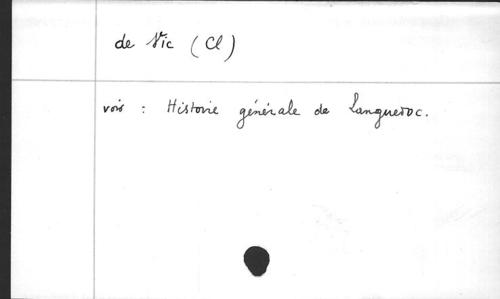 de Vic (Cl)
voir : Histoire générale de Languedoc.